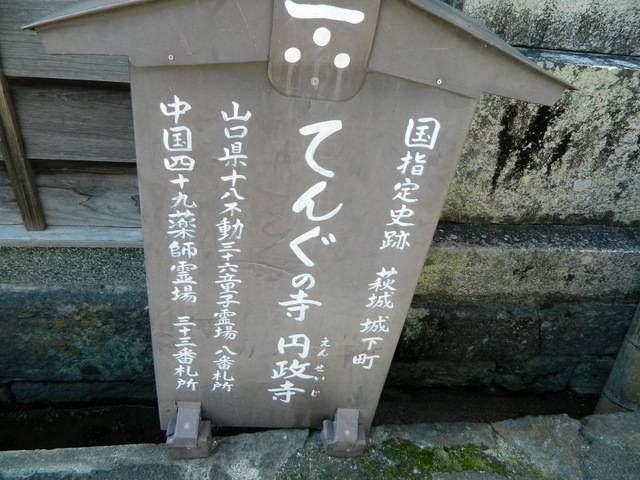 国指定史跡 萩城 城下町
てんぐの寺 円政寺
えんせいじ
山口県十八不動三十六童子霊場 八番札所
中国四十九薬師霊場 三十三番札所